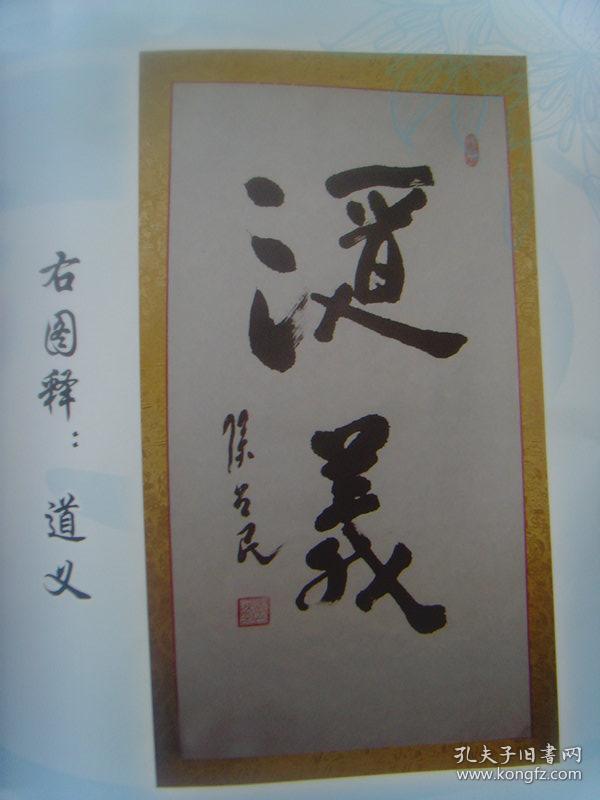 右图释：道义
道義
孔夫子旧書网
www.kongfz.com